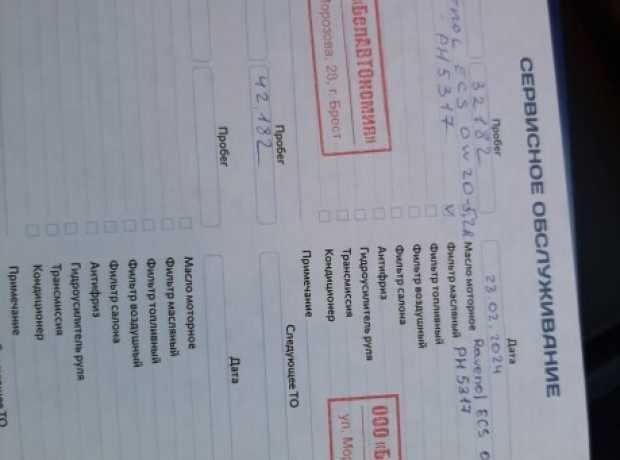 СЕРВИСНОЕ ОБСЛУЖИВАНИЕ
Пробег
32182
Дата
23.02.2024
ECS 0W20-5,2л
Масло моторное Ravenol ECS
PH5317 V Фильтр масляный PH5317
Фильтр топливный
Фильтр воздушный
Фильтр салона
Антифриз
Гидроусилитель руля
Трансмиссия
Кондиционер
Примечание
«БелАВТОКОМИЯ
Морозова, 28, г. Брест
ООО «Б
ул. Мор
Следующее ТО
Пробег
42.182
Пробег
Дата
Масло моторное
Фильтр масляный
Фильтр топливный
Фильтр воздушный
Фильтр салона
Антифриз
Гидроусилитель руля
Трансмиссия
Кондиционер
Примечание
ТО